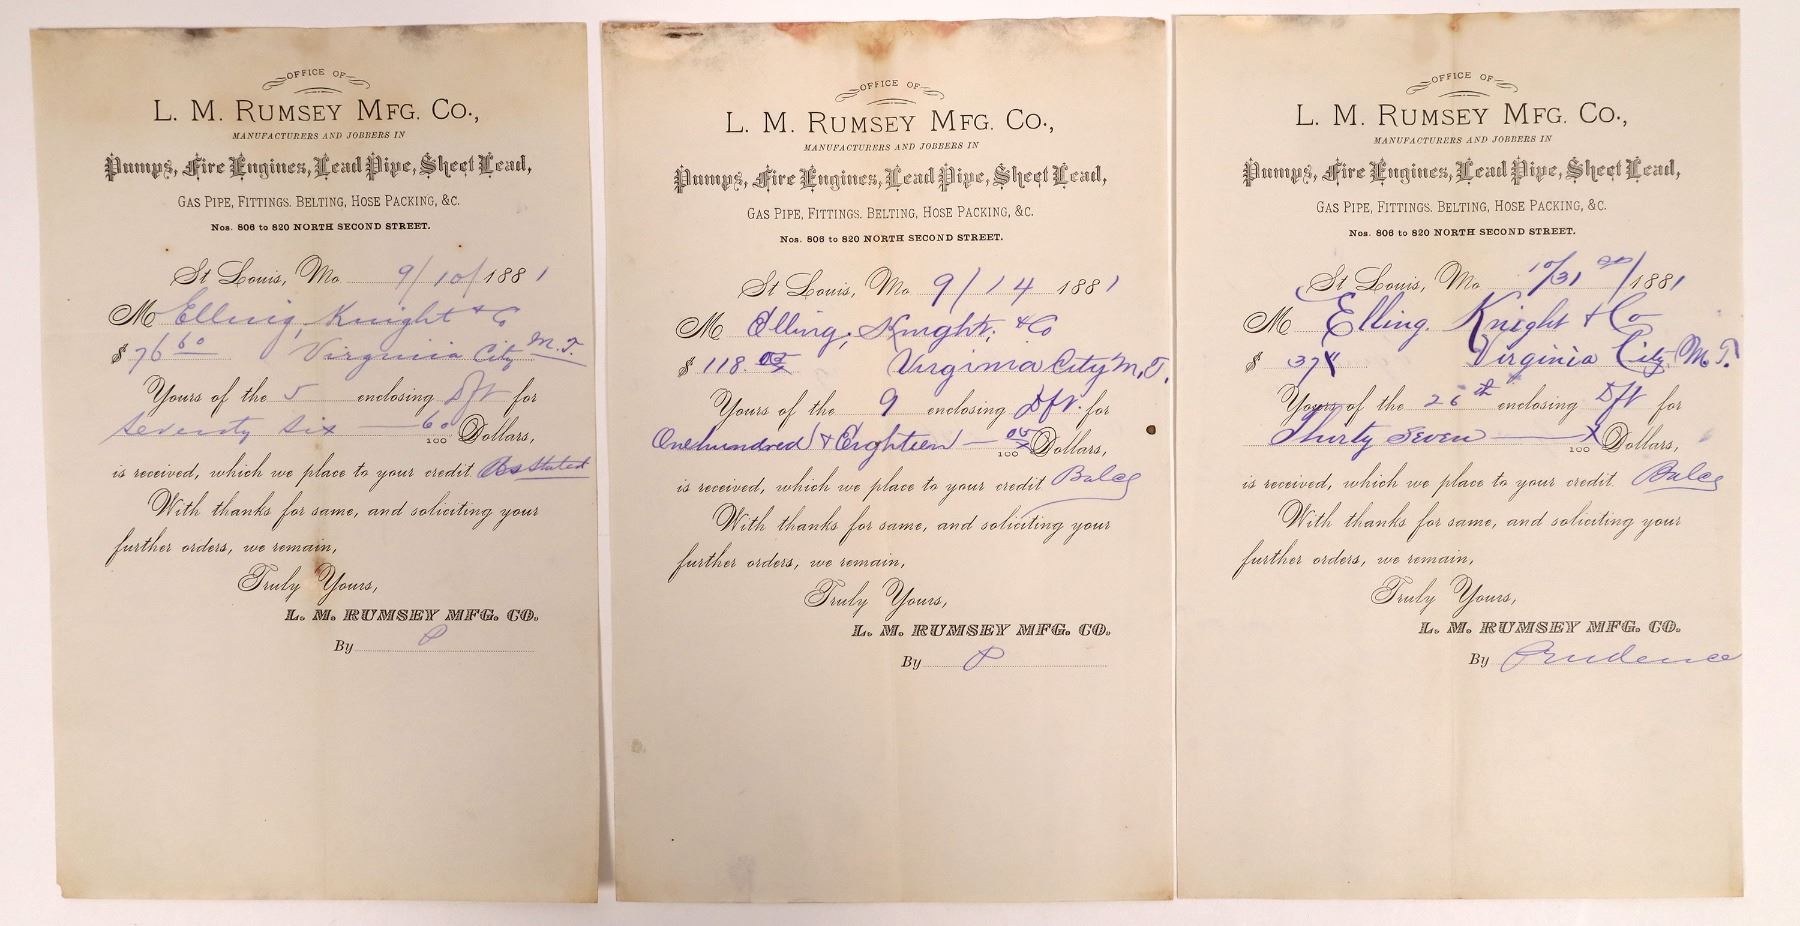 OFFICE OF
L. M. RUMSEY MFG. CO.,
MANUFACTURERS AND JOBBERS IN
Pumps, Fire Engines, Lead Pipe, Sheet Lead,
GAS PIPE, FITTINGS. BELTING, HOSE PACKING, &C.
Nos. 806 to 820 NORTH SECOND STREET.
St Louis, Mo 9/10/1881
M Elling, Knight & Co
$ 76 60 Virginia City M.T.
Yours of the 5 enclosing Dft for
Seventy Six — 60/100 Dollars,
is received, which we place to your credit As Stated
With thanks for same, and soliciting your
further orders, we remain,
Truly Yours,
L. M. RUMSEY MFG. CO.
By P
OFFICE OF
L. M. RUMSEY MFG. CO.,
MANUFACTURERS AND JOBBERS IN
Pumps, Fire Engines, Lead Pipe, Sheet Lead,
GAS PIPE, FITTINGS. BELTING, HOSE PACKING, &C.
Nos. 806 to 820 NORTH SECOND STREET.
St Louis, Mo 9/14 1881
M Elling, Knight, & Co
$ 118. Virginia City M.T.
Yours of the 9 enclosing Dft. for
One hundred & Eighteen — /100 Dollars,
is received, which we place to your credit Balce
With thanks for same, and soliciting your
further orders, we remain,
Truly Yours,
L. M. RUMSEY MFG. CO.
By P
OFFICE OF
L. M. RUMSEY MFG. CO.,
MANUFACTURERS AND JOBBERS IN
Pumps, Fire Engines, Lead Pipe, Sheet Lead,
GAS PIPE, FITTINGS. BELTING, HOSE PACKING, &C.
Nos. 806 to 820 NORTH SECOND STREET.
St Louis, Mo 10/31 /1881
M Elling Knight & Co
$ 37 Virginia City, M.T.
Yours of the 26th enclosing Dft for
Thirty Seven — x/100 Dollars,
is received, which we place to your credit. Balce
With thanks for same, and soliciting your
further orders, we remain,
Truly Yours,
L. M. RUMSEY MFG. CO.
By Prudence